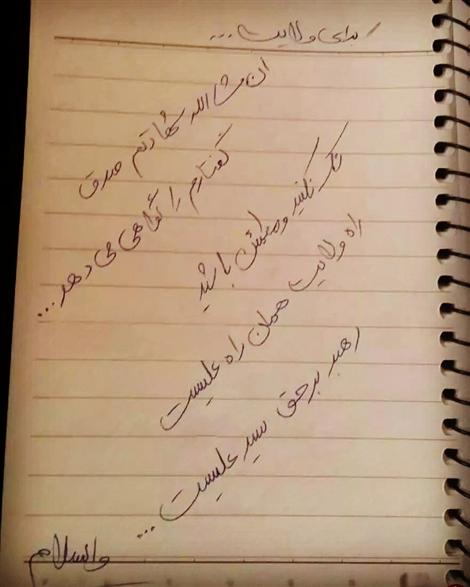 برای ولایت...
ان شاالله شهادتم صدق
گفتارم را گواهی می دهد...
شک نکنید و مطمئن باشید
راه ولایت همان راه علیست
رهبر برحق سید علیست...
والسلام